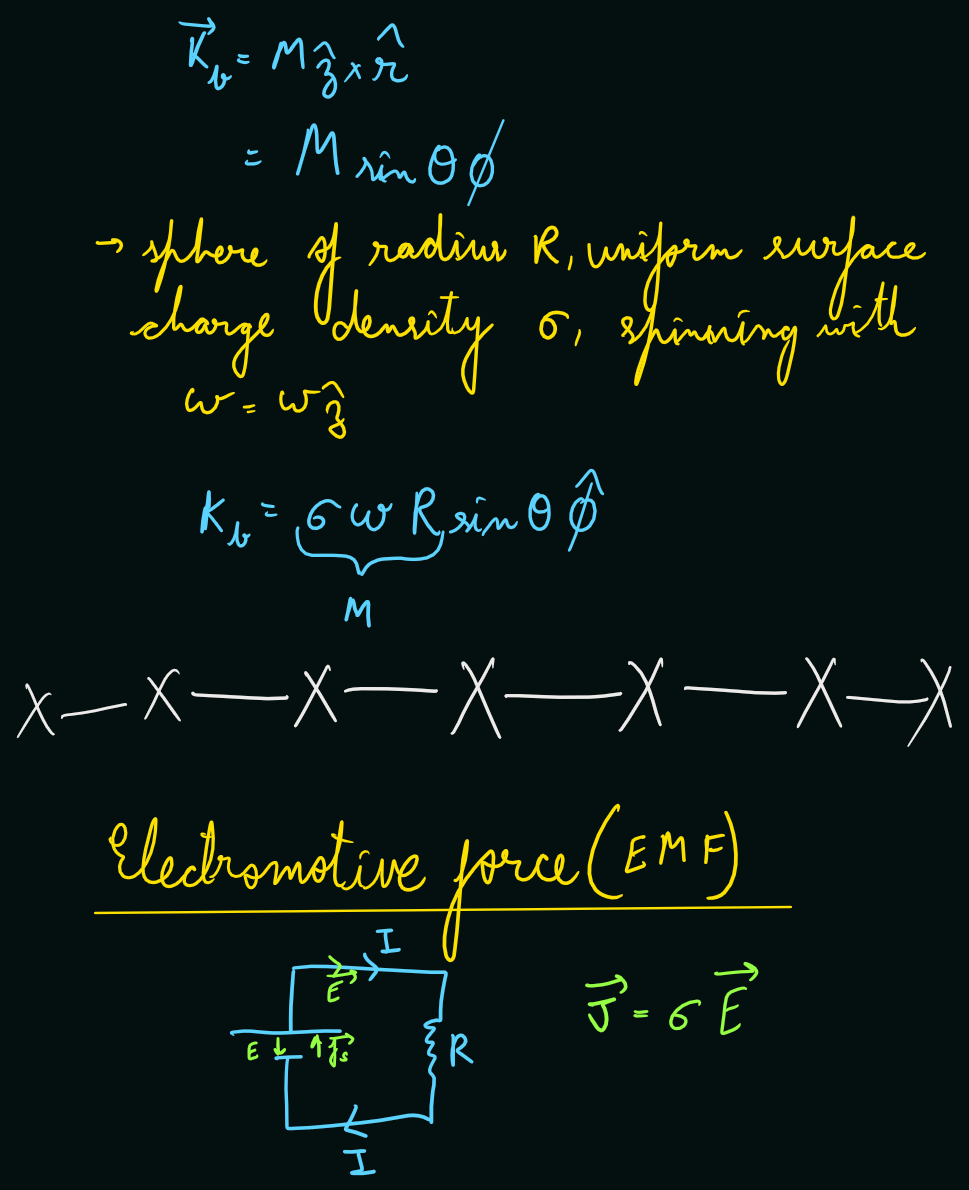 K⃗_b = M ẑ × r̂
= M sin θ ϕ
→ sphere of radius R, uniform surface
charge density σ, spinning with
ω = ω ẑ
K_b = σ ω R sin θ ϕ̂
M
X — X — X — X — X — X — X
Electromotive force (EMF)
I
E⃗
J⃗ = σ E⃗
E ↓ ↑ f⃗_s
R
I